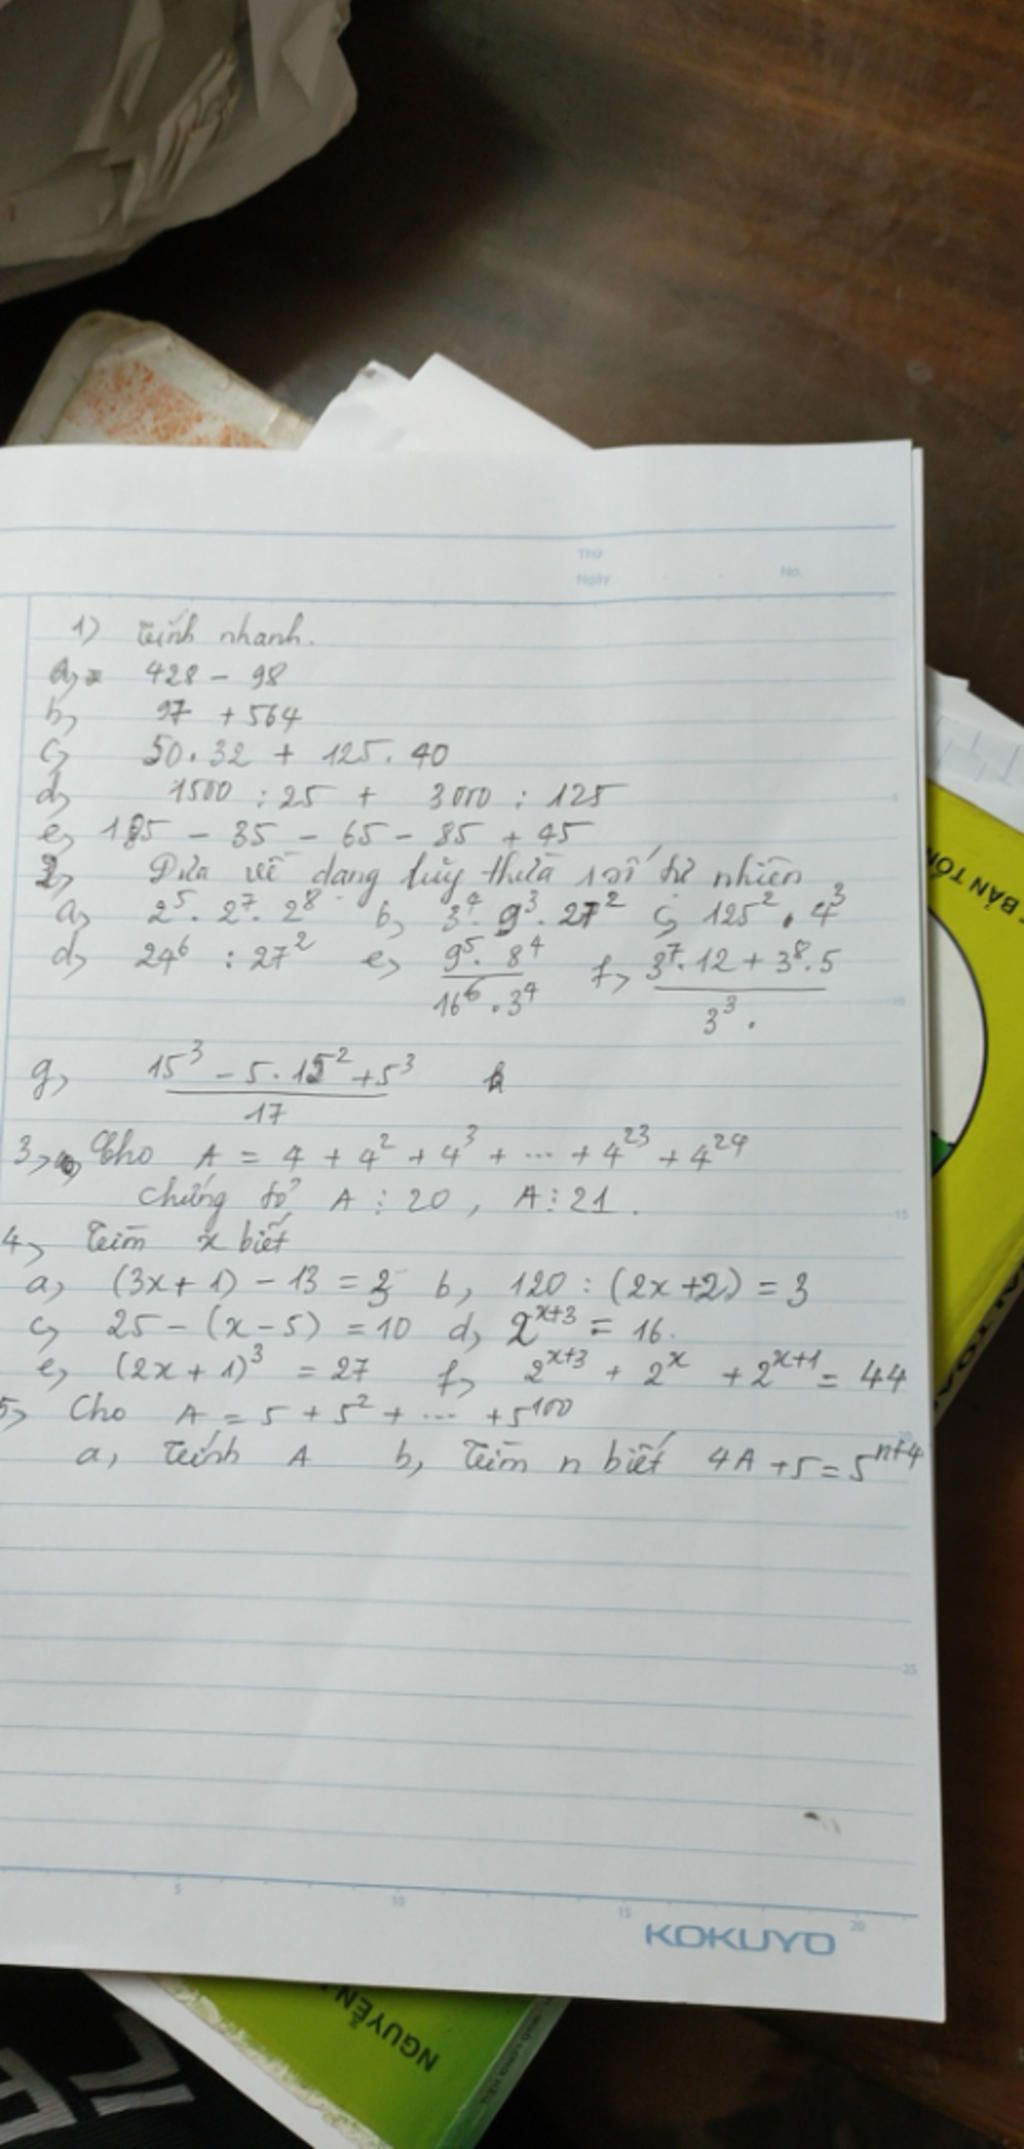 Thứ
Ngày . . No.
1) Tính nhanh.
a, 428 - 98
b, 97 + 564
c, 50.32 + 125.40
d, 1500 : 25 + 3000 : 125
e, 185 - 35 - 65 - 85 + 45
2, Đưa về dạng luỹ thừa với số tự nhiên
a, 2^5.2^7.2^8 b, 3^4.9^3.27^2 c, 125^2.4^3
d, 24^6 : 27^2 e, (9^5.8^4)/(16^6.3^4) f, (3^7.12 + 3^8.5)/(3^3.)
g, (15^3 - 5.15^2 + 5^3)/17
3, Cho A = 4 + 4^2 + 4^3 + ... + 4^23 + 4^24
Chứng tỏ A ⋮ 20, A ⋮ 21.
4, Tìm x biết
a, (3x + 1) - 13 = 3 b, 120 : (2x + 2) = 3
c, 25 - (x - 5) = 10 d, 2^(x+3) = 16.
e, (2x + 1)^3 = 27 f, 2^(x+3) + 2^x + 2^(x+1) = 44
5, Cho A = 5 + 5^2 + ... + 5^100
a, Tính A b, Tìm n biết 4A + 5 = 5^(n+4)
5 10 15 20
KOKUYO
NGUYỄN